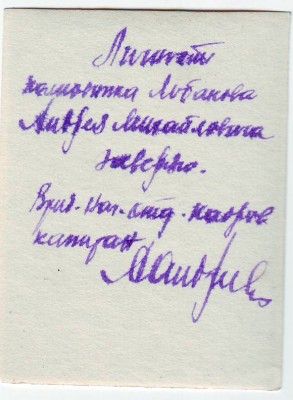 Личность
полковника Лобанова
Андрея Михайловича
заверяю.
Врид. Нач. отд. кадров
капитан